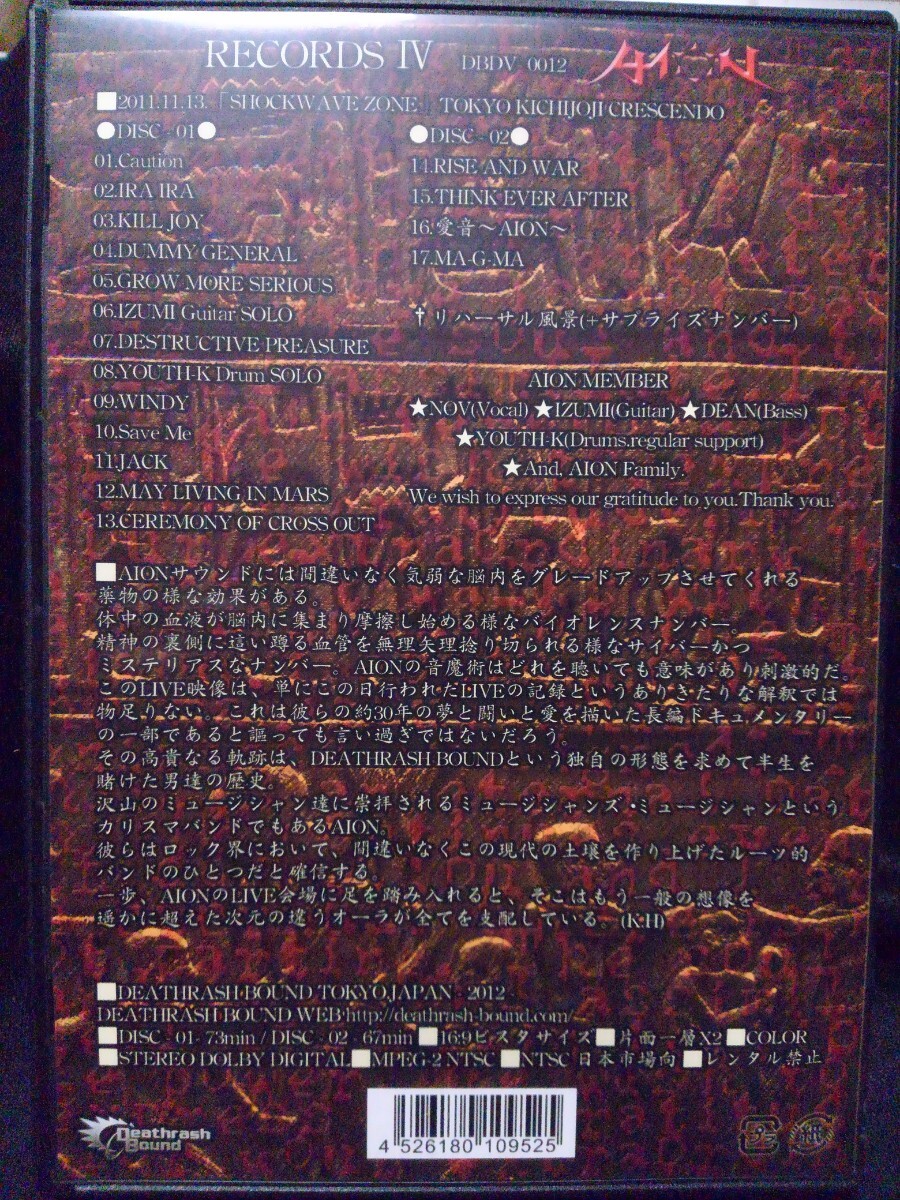 RECORDS IV DBDV 0012 AION
■2011.11.13.「SHOCKWAVE ZONE」TOKYO KICHIJOJI CRESCENDO
●DISC - 01●
01.Caution
02.IRA IRA
03.KILL JOY
04.DUMMY GENERAL
05.GROW MORE SERIOUS
06.IZUMI Guitar SOLO
07.DESTRUCTIVE PREASURE
08.YOUTH-K Drum SOLO
09.WINDY
10.Save Me
11.JACK
12.MAY LIVING IN MARS
13.CEREMONY OF CROSS OUT
●DISC - 02●
14.RISE AND WAR
15.THINK EVER AFTER
16.愛音～AION～
17.MA-G-MA
†リハーサル風景(+サプライズナンバー)
AION MEMBER
★NOV(Vocal) ★IZUMI(Guitar) ★DEAN(Bass)
★YOUTH-K(Drums.regular support)
★And, AION Family.
We wish to express our gratitude to you.Thank you.
■AIONサウンドには間違いなく気弱な脳内をグレードアップさせてくれる
薬物の様な効果がある。
体中の血液が脳内に集まり摩擦し始める様なバイオレンスナンバー。
精神の裏側に這い蹲る血管を無理矢理捻り切られる様なサイバーかつ
ミステリアスなナンバー。AIONの音魔術はどれを聴いても意味があり刺激的だ。
このLIVE映像は、単にこの日行われだLIVEの記録というありきたりな解釈では
物足りない。これは彼らの約30年の夢と闘いと愛を描いた長編ドキュメンタリー
の一部であると謳っても言い過ぎではないだろう。
その高貴なる軌跡は、DEATHRASH BOUNDという独自の形態を求めて半生を
賭けた男達の歴史。
沢山のミュージシャン達に崇拝されるミュージシャンズ・ミュージシャンという
カリスマバンドでもあるAION。
彼らはロック界において、間違いなくこの現代の土壌を作り上げたルーツ的
バンドのひとつだと確信する。
一歩、AIONのLIVE会場に足を踏み入れると、そこはもう一般の想像を
遥かに超えた次元の違うオーラが全てを支配している。(K.H)
■DEATHRASH BOUND TOKYO,JAPAN - 2012
DEATHRASH BOUND WEB http://deathrash-bound.com/
■DISC - 01- 73min / DISC - 02 67min ■16:9ビスタサイズ ■片面一層X2 ■COLOR
■STEREO DOLBY DIGITAL ■MPEG-2 NTSC ■NTSC 日本市場向 ■レンタル禁止
Deathrash
Bound
4 526180 109525
プラ 紙